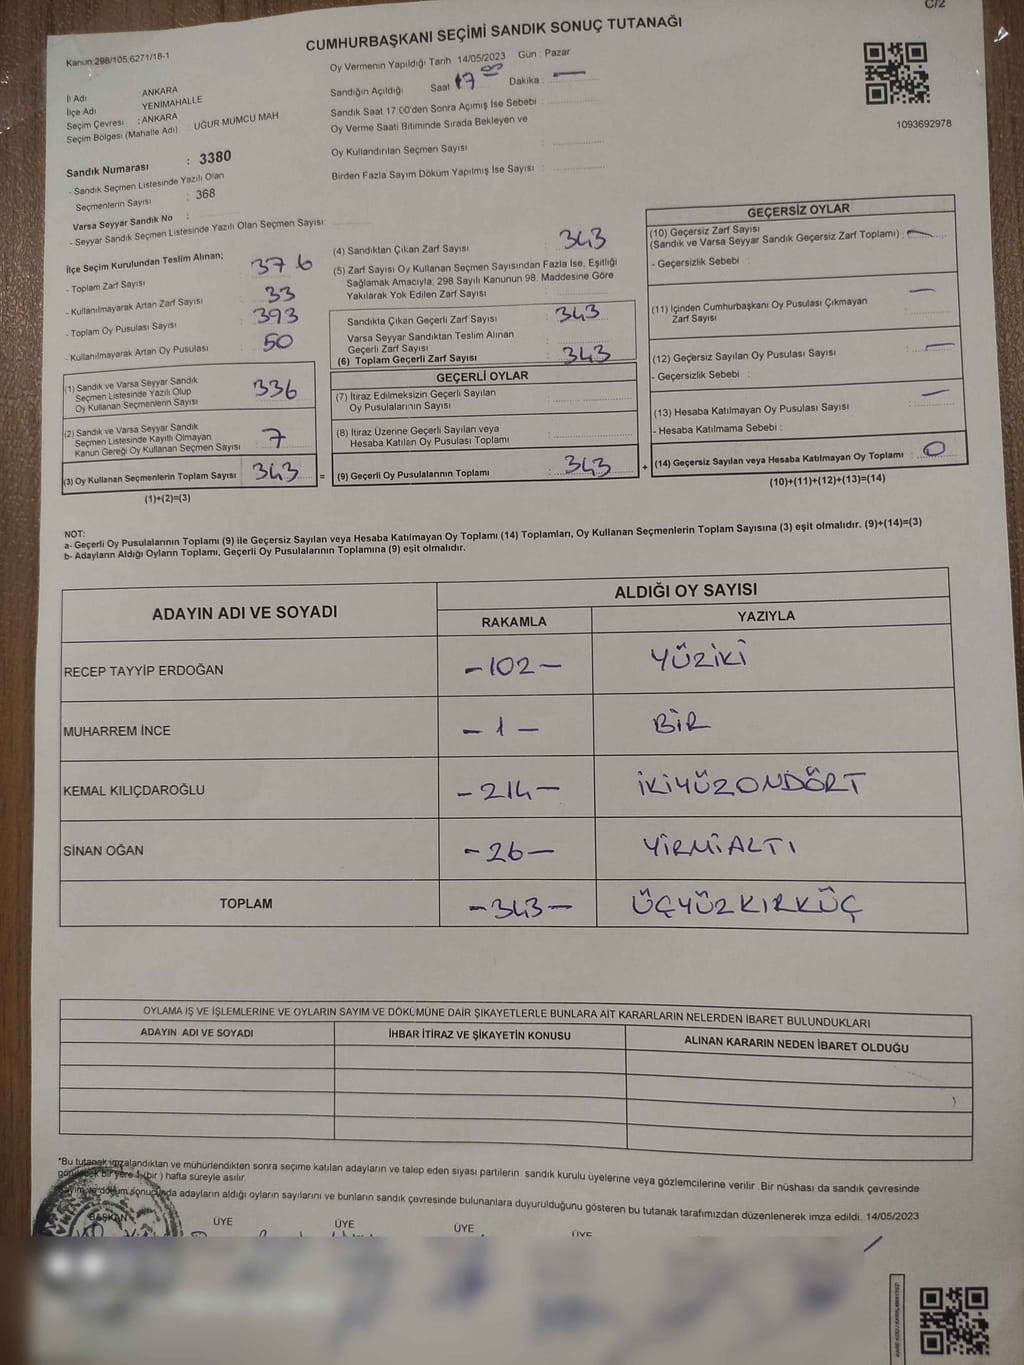 C/2
CUMHURBAŞKANI SEÇİMİ SANDIK SONUÇ TUTANAĞI
Kanun:298/105;6271/18-1
İl Adı ANKARA
İlçe Adı YENİMAHALLE
Seçim Çevresi : ANKARA
Seçim Bölgesi (Mahalle Adı) UĞUR MUMCU MAH
Sandık Numarası : 3380
- Sandık Seçmen Listesinde Yazılı Olan
Seçmenlerin Sayısı : 368
Varsa Seyyar Sandık No :
- Seyyar Sandık Seçmen Listesinde Yazılı Olan Seçmen Sayısı:
Oy Vermenin Yapıldığı Tarih 14/05/2023 Gün : Pazar
Sandığın Açıldığı Saat 17 00 Dakika : —
Sandık Saat 17:00'den Sonra Açımış İse Sebebi :
Oy Verme Saati Bitiminde Sırada Bekleyen ve
Oy Kullandırılan Seçmen Sayısı :
Birden Fazla Sayım Döküm Yapılmış İse Sayısı :
1093692978
İlçe Seçim Kurulundan Teslim Alınan;
- Toplam Zarf Sayısı : 376
- Kullanılmayarak Artan Zarf Sayısı : 33
- Toplam Oy Pusulası Sayısı : 393
- Kullanılmayarak Artan Oy Pusulası : 50
(1) Sandık ve Varsa Seyyar Sandık
Seçmen Listesinde Yazılı Olup
Oy Kullanan Seçmenlerin Sayısı : 336
(2) Sandık ve Varsa Seyyar Sandık
Seçmen Listesinde Kayıtlı Olmayan
Kanun Gereği Oy Kullanan Seçmen Sayısı : 7
(3) Oy Kullanan Seçmenlerin Toplam Sayısı : 343
(1)+(2)=(3)
(4) Sandıktan Çıkan Zarf Sayısı : 343
(5) Zarf Sayısı Oy Kullanan Seçmen Sayısından Fazla İse, Eşitliği
Sağlamak Amacıyla; 298 Sayılı Kanunun 98. Maddesine Göre
Yakılarak Yok Edilen Zarf Sayısı :
Sandıkta Çıkan Geçerli Zarf Sayısı : 343
Varsa Seyyar Sandıktan Teslim Alınan
Geçerli Zarf Sayısı :
(6) Toplam Geçerli Zarf Sayısı : 343
GEÇERLİ OYLAR
(7) İtiraz Edilmeksizin Geçerli Sayılan
Oy Pusulalarının Sayısı :
(8) İtiraz Üzerine Geçerli Sayılan veya
Hesaba Katılan Oy Pusulası Toplamı :
= (9) Geçerli Oy Pusulalarının Toplamı : 343
GEÇERSİZ OYLAR
(10) Geçersiz Zarf Sayısı
(Sandık ve Varsa Seyyar Sandık Geçersiz Zarf Toplamı) : —
- Geçersizlik Sebebi :
(11) İçinden Cumhurbaşkanı Oy Pusulası Çıkmayan
Zarf Sayısı : —
(12) Geçersiz Sayılan Oy Pusulası Sayısı : —
- Geçersizlik Sebebi :
(13) Hesaba Katılmayan Oy Pusulası Sayısı : —
- Hesaba Katılmama Sebebi :
+ (14) Geçersiz Sayılan veya Hesaba Katılmayan Oy Toplamı : 0
(10)+(11)+(12)+(13)=(14)
NOT:
a- Geçerli Oy Pusulalarının Toplamı (9) ile Geçersiz Sayılan veya Hesaba Katılmayan Oy Toplamı (14) Toplamları, Oy Kullanan Seçmenlerin Toplam Sayısına (3) eşit olmalıdır. (9)+(14)=(3)
b- Adayların Aldığı Oyların Toplamı, Geçerli Oy Pusulalarının Toplamına (9) eşit olmalıdır.
ADAYIN ADI VE SOYADI ALDIĞI OY SAYISI
RAKAMLA YAZIYLA
RECEP TAYYİP ERDOĞAN -102- YÜZİKİ
MUHARREM İNCE -1- BİR
KEMAL KILIÇDAROĞLU -214- İKİYÜZONDÖRT
SİNAN OĞAN -26- YİRMİALTI
TOPLAM -343- ÜÇYÜZKIRKÜÇ
OYLAMA İŞ VE İŞLEMLERİNE VE OYLARIN SAYIM VE DÖKÜMÜNE DAİR ŞİKAYETLERLE BUNLARA AİT KARARLARIN NELERDEN İBARET BULUNDUKLARI
ADAYIN ADI VE SOYADI İHBAR İTİRAZ VE ŞİKAYETİN KONUSU ALINAN KARARIN NEDEN İBARET OLDUĞU
*Bu tutanak imzalandıktan ve mühürlendikten sonra seçime katılan adayların ve talep eden siyasi partilerin sandık kurulu üyelerine veya gözlemcilerine verilir. Bir nüshası da sandık çevresinde
görülecek bir yere 1 (bir ) hafta süreyle asılır.
Sayım ve döküm sonucunda adayların aldığı oyların sayılarını ve bunların sandık çevresinde bulunanlara duyurulduğunu gösteren bu tutanak tarafımızdan düzenlenerek imza edildi. 14/05/2023
BAŞKAN ÜYE ÜYE ÜYE ÜYE